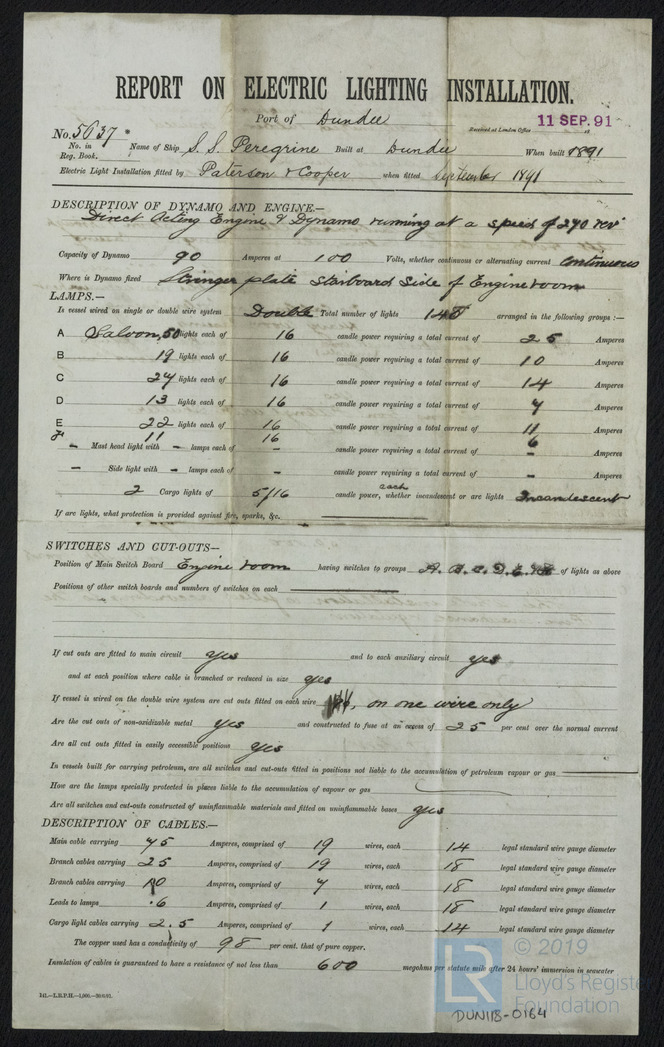 REPORT ON ELECTRIC LIGHTING INSTALLATION.
Port of Dundee
Received at London Office 11 SEP. 91 18
No. 5637
No. in Reg. Book. Name of Ship S.S. Peregrine Built at Dundee When built 1891
Electric Light Installation fitted by Paterson & Cooper when fitted September 1891
DESCRIPTION OF DYNAMO AND ENGINE.—
Direct Acting Engine & Dynamo running at a speed of 270 rev
Capacity of Dynamo 90 Amperes at 100 Volts, whether continuous or alternating current Continuous
Where is Dynamo fixed Stringer plate Starboard Side of Engine room
LAMPS.—
Is vessel wired on single or double wire system Double Total number of lights arranged in the following groups :—
A Saloon, 50 lights each of 16 candle power requiring a total current of 25 Amperes
B 19 lights each of 16 candle power requiring a total current of 10 Amperes
C 27 lights each of 16 candle power requiring a total current of 14 Amperes
D 13 lights each of 16 candle power requiring a total current of 7 Amperes
E 22 lights each of 16 candle power requiring a total current of 11 Amperes
F 11 16 6
– Mast head light with – lamps each of – candle power requiring a total current of – Amperes
– Side light with – lamps each of – candle power requiring a total current of – Amperes
2 Cargo lights of 5/16 each candle power, whether incandescent or arc lights Incandescent
If arc lights, what protection is provided against fire, sparks, &c.
SWITCHES AND CUT-OUTS—
Position of Main Switch Board Engine room having switches to groups A. B. C. D. E. & F. of lights as above
Positions of other switch boards and numbers of switches on each
If cut outs are fitted to main circuit yes and to each auxiliary circuit yes
and at each position where cable is branched or reduced in size yes
If vessel is wired on the double wire system are cut outs fitted on each wire , on one wire only
Are the cut outs of non-oxidizable metal yes and constructed to fuse at an excess of 25 per cent over the normal current
Are all cut outs fitted in easily accessible positions yes
In vessels built for carrying petroleum, are all switches and cut-outs fitted in positions not liable to the accumulation of petroleum vapour or gas
How are the lamps specially protected in places liable to the accumulation of vapour or gas
Are all switches and cut-outs constructed of uninflammable materials and fitted on uninflammable bases yes
DESCRIPTION OF CABLES.—
Main cable carrying 75 Amperes, comprised of 19 wires, each 14 legal standard wire gauge diameter
Branch cables carrying 25 Amperes, comprised of 19 wires, each 18 legal standard wire gauge diameter
Branch cables carrying 10 Amperes, comprised of 7 wires, each 18 legal standard wire gauge diameter
Leads to lamps .6 Amperes, comprised of 1 wires, each 18 legal standard wire gauge diameter
Cargo light cables carrying 2.5 Amperes, comprised of 1 wires, each 14 legal standard wire gauge diameter
The copper used has a conductivity of 98 per cent. that of pure copper.
Insulation of cables is guaranteed to have a resistance of not less than 600 megohms per statute mile after 24 hours' immersion in seawater
LR © 2019
Lloyd's Register
Foundation
DUN118-0164